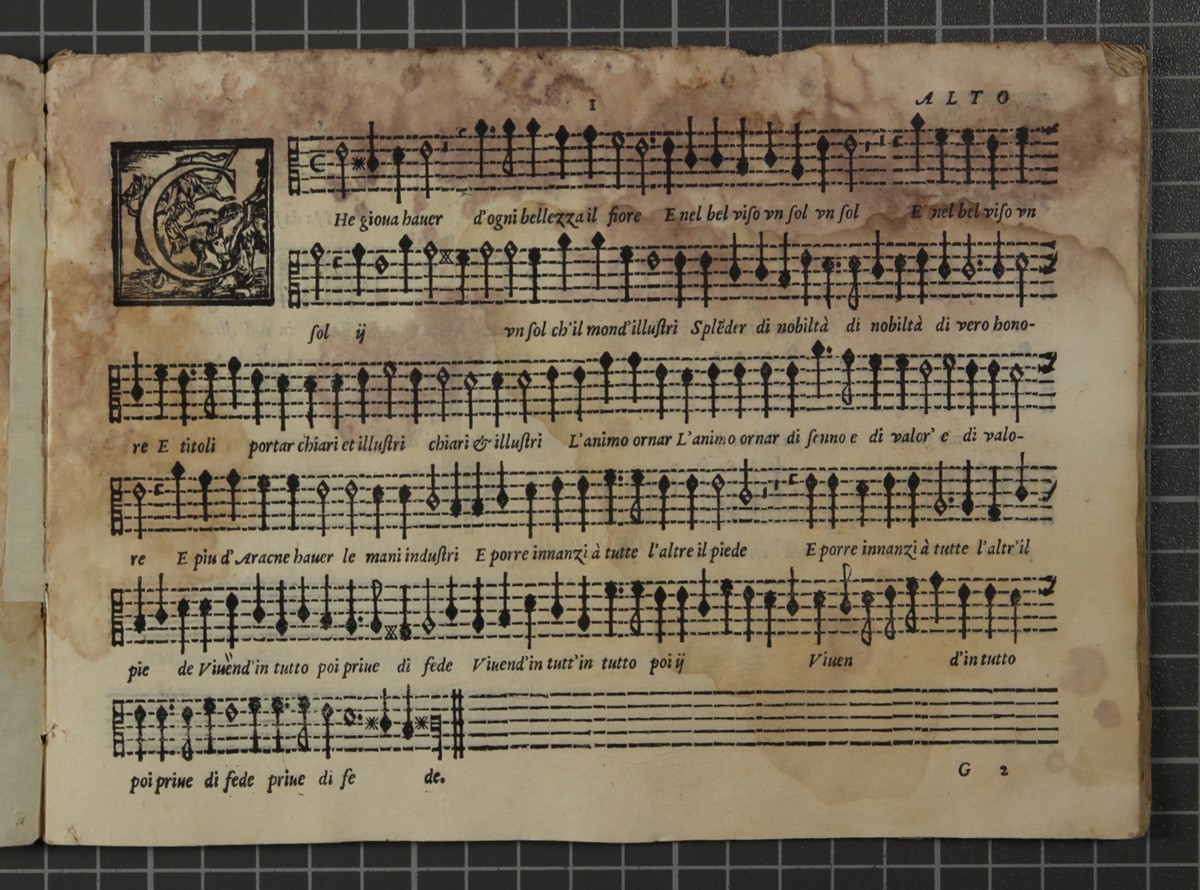 1
ALTO
CHe gioua hauer d'ogni bellezza il fiore E nel bel viſo vn ſol vn ſol E nel bel viſo vn
ſol ij vn ſol ch'il mond'illuſtri Splẽder di nobiltà di nobiltà di vero hono-
re E titoli portar chiari et illuſtri chiari & illuſtri L'animo ornar L'animo ornar di ſenno e di valor' e di valo-
re E piu d'Aracne hauer le mani induſtri E porre innanzi à tutte l'altre il piede E porre innanzi à tutte l'altr'il
pie de Viuend'in tutto poi priue di fede Viuend'in tutt'in tutto poi ij Viuen d'in tutto
poi priue di fede priue di fe de.
G 2